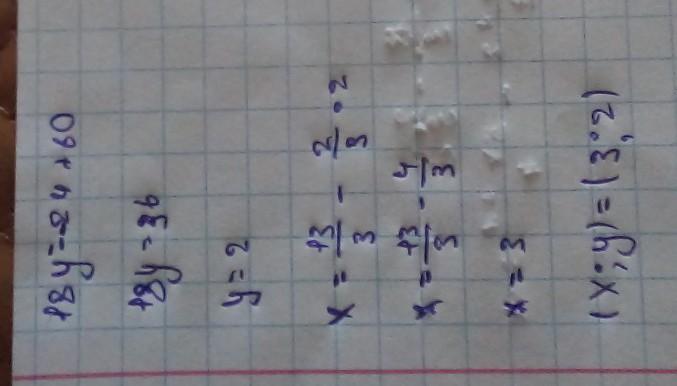 18y=-24+60
18y=36
y=2
x = 13/3 - 2/3 · 2
x = 13/3 - 4/3
x = 3
(x;y)=(3;2)